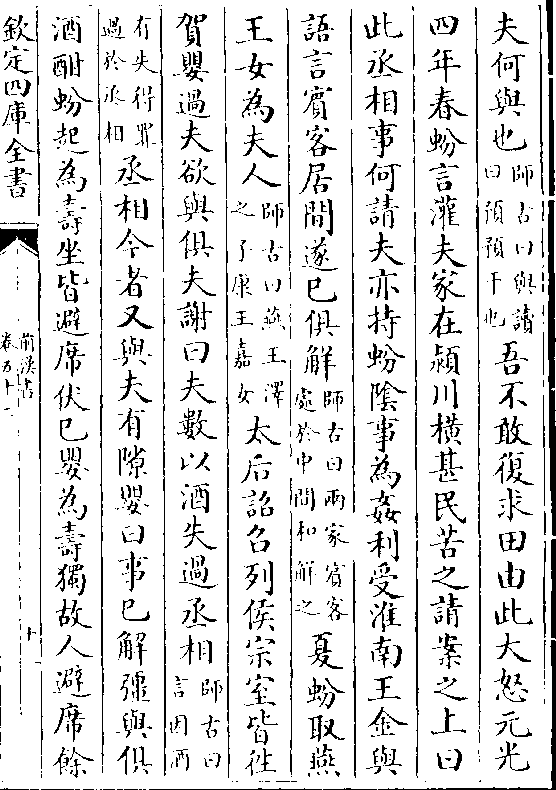 夫何與也師古曰與讀曰預預干也吾不敢復求田由此大怒元光
四年春蚡言灌夫家在潁川橫甚民苦之請案之上曰
此丞相事何請夫亦持蚡陰事為姦利受淮南王金與
語言賓客居間遂已俱解師古曰兩家賓客處於中間和解之夏蚡取燕
王女為夫人師古曰燕王澤之子康王嘉女太后詔召列侯宗室皆往
賀嬰過夫欲與俱夫謝曰夫數以酒失過丞相師古曰言因酒
有失得罪過於丞相丞相今者又與夫有隙嬰曰事已解彊與俱
酒酣蚡起為壽坐皆避席伏已嬰為壽獨故人避席餘
欽定四庫全書
前漢書
卷五十二
十